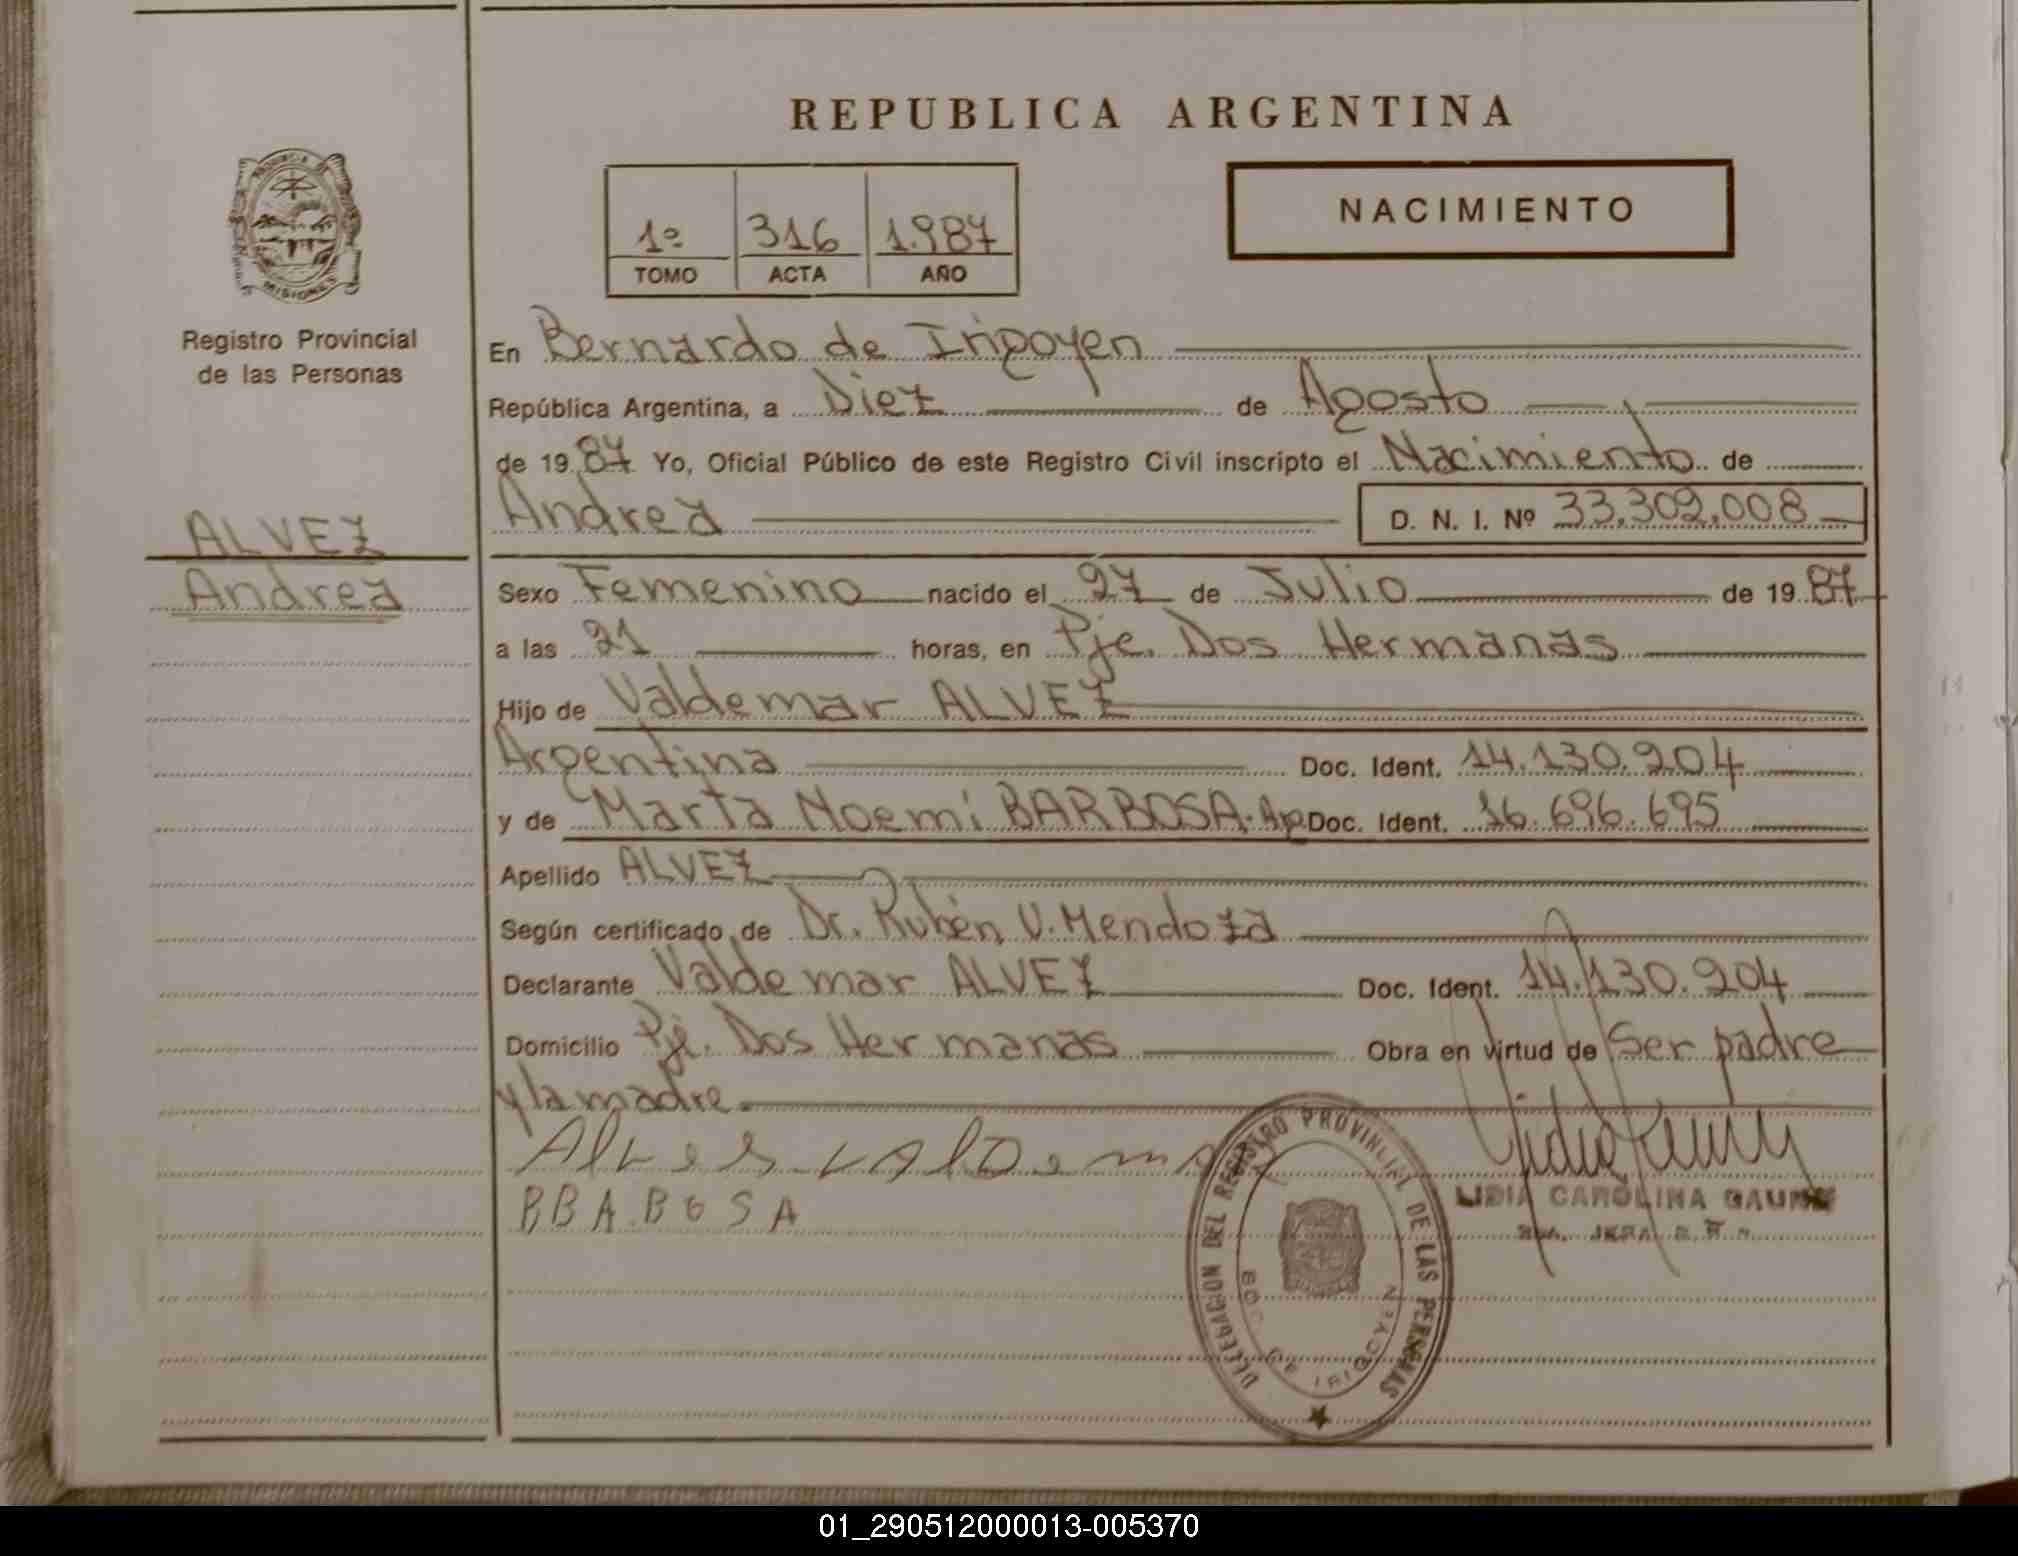 REPUBLICA ARGENTINA
PROVINCIA DE
MISIONES
Registro Provincial
de las Personas
1º 316 1.987
TOMO ACTA AÑO
NACIMIENTO
En Bernardo de Irigoyen
República Argentina, a Diez de Agosto
de 19 87 Yo, Oficial Público de este Registro Civil inscripto el Nacimiento de
Andrea D. N. I. Nº 33.309.008
ALVEZ
Andrea
Sexo Femenino nacido el 27 de Julio de 19 87
a las 21 horas, en Pje. Dos Hermanas
Hijo de Valdemar ALVEZ
Argentina Doc. Ident. 14.130.204
y de Marta Noemi BARBOSA. Doc. Ident. 16.696.695
Apellido ALVEZ
Según certificado de Dr. Rubén V. Mendoza
Declarante Valdemar ALVEZ Doc. Ident. 14.130.204
Domicilio Pje. Dos Hermanas Obra en virtud de Ser padre
y la madre.
BBA.BOSA
DELEGACION DEL REGISTRO PROVINCIAL DE LAS PERSONAS
BDO. DE IRIGOYEN
LIDIA CAROLINA GAUNA
01_290512000013-005370